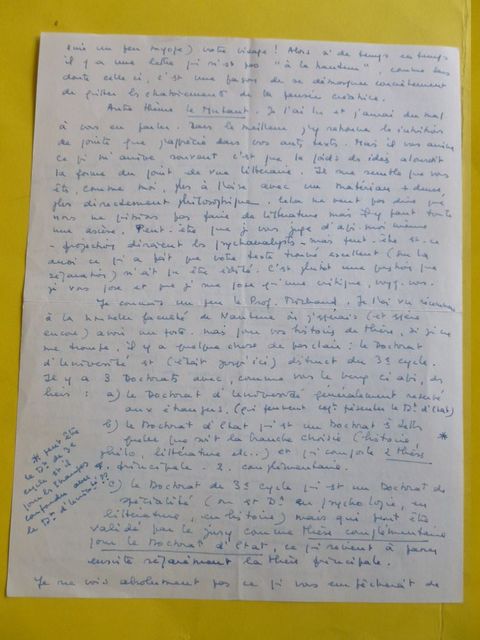 suis un peu myope) votre visage! Alors si de temps en temps
il y a une lettre qui n'est pas "à la hauteur", comme sans
doute celle-ci, c'est une façon de se démarquer concrètement
de quitter les chatoiements de la pensée créatrice.
Autre thème le Mutant. Je l'ai lu et j'aurai du mal
à vous en parler. Dans le meilleur j'y retrouve les intuitions
de poète que j'apprécie dans vos autres textes. Mais il vous arrive
ce qui m'arrive souvent c'est que le poids des idées alourdit
la forme du point de vue littéraire. Il me semble que vous
êtes, comme moi, plus à l'aise avec un matériau + dense,
plus directement philosophique. Cela ne veut pas dire que
nous ne puissions pas faire de littérature mais il y faut toute
une ascèse. Peut-être que je vous juge d'après moi-même
- projection diraient les psychanalystes - mais peut-être est-ce
aussi ce qui a fait que votre texte trouvé excellent (sur la
séparation) n'ait pu être édité. C'est plutôt une question que
je vous pose et que je me pose qu'une critique, voyez-vous.
Je connais un peu le Prof. Mirbaud. Je l'ai vu récemment
à la nouvelle faculté de Nanterre où j'espérais (et espère
encore) avoir un poste. Mais pour vos histoires de thèse, si je ne
me trompe, il y a quelque chose de pas clair: le Doctorat
d'Université est (était jusqu'ici) distinct du 3e cycle.
Il y a 3 Doctorats avec, comme vous le verrez ci-après, des
liens: a) le Doctorat d'Université généralement réservé
aux étrangers. (qui peuvent présenter le Dt d'Etat)
b) le Doctorat d'Etat qui est un Doctorat ès Lettres
quelle que soit la branche choisie (histoire, *
philo, littérature etc..) et qui comporte 2 thèses
1. principale. 2. complémentaire.
c) le Doctorat de 3e cycle qui est un Doctorat de
spécialité (on est Dr en psychologie, en
littérature, en histoire) mais qui peut être
validé par le jury comme thèse complémentaire
pour le Doctorat d'Etat, ce qui revient à passer
ensuite séparément la thèse principale.
Je ne vois absolument pas ce qui vous empêcherait de
* peut-être
le Dt de 3e
cycle est-il
pour les étrangers
confondu avec
le Dt d'Université??